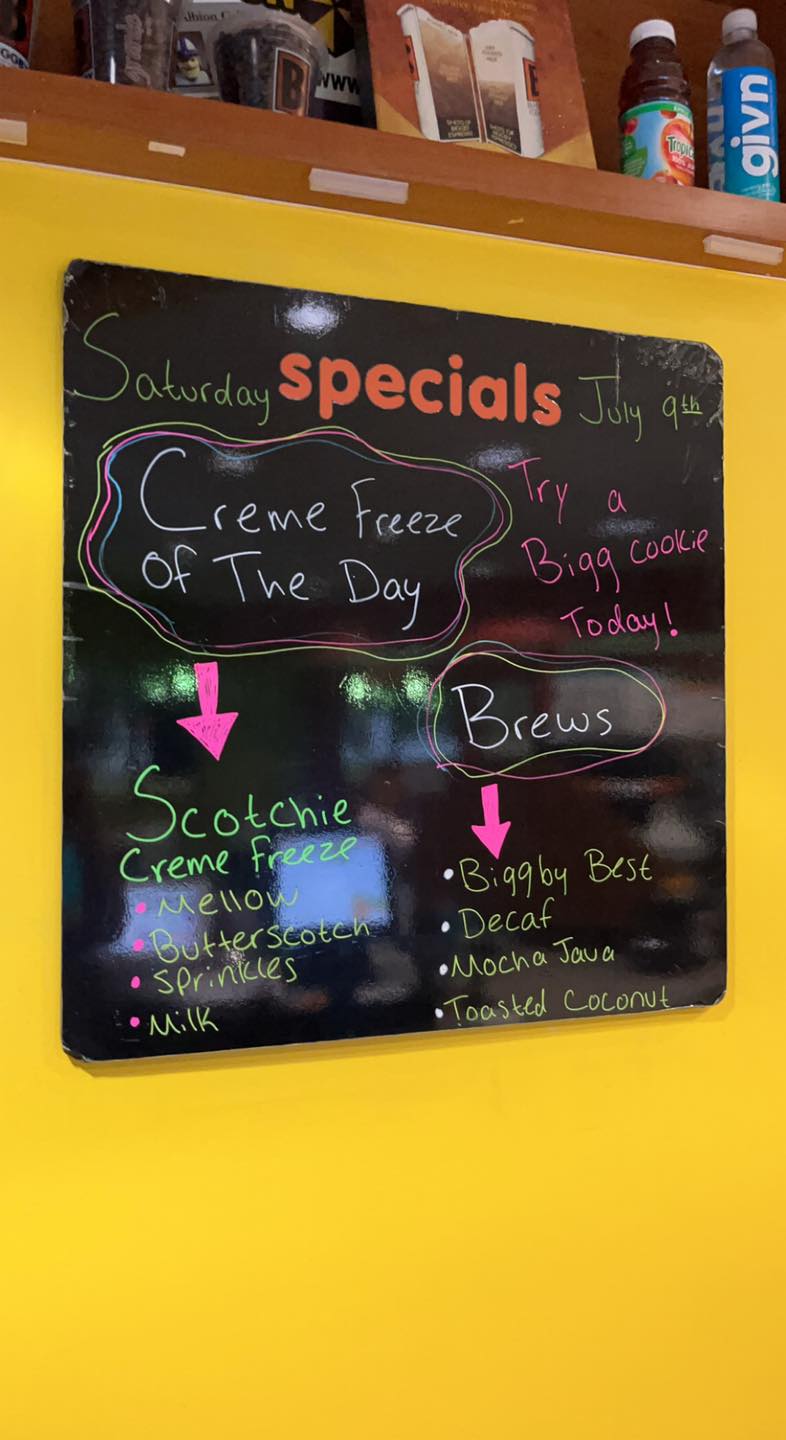 Albion
B
WWW
Tropic
givn
Saturday specials July 9th
Creme Freeze
Of The Day
Try a
Bigg cookie
Today!
Brews
Scotchie
Creme Freeze
• Mellow
• Butterscotch
• Sprinkles
• Milk
• Biggby Best
• Decaf
• Mocha Java
• Toasted Coconut